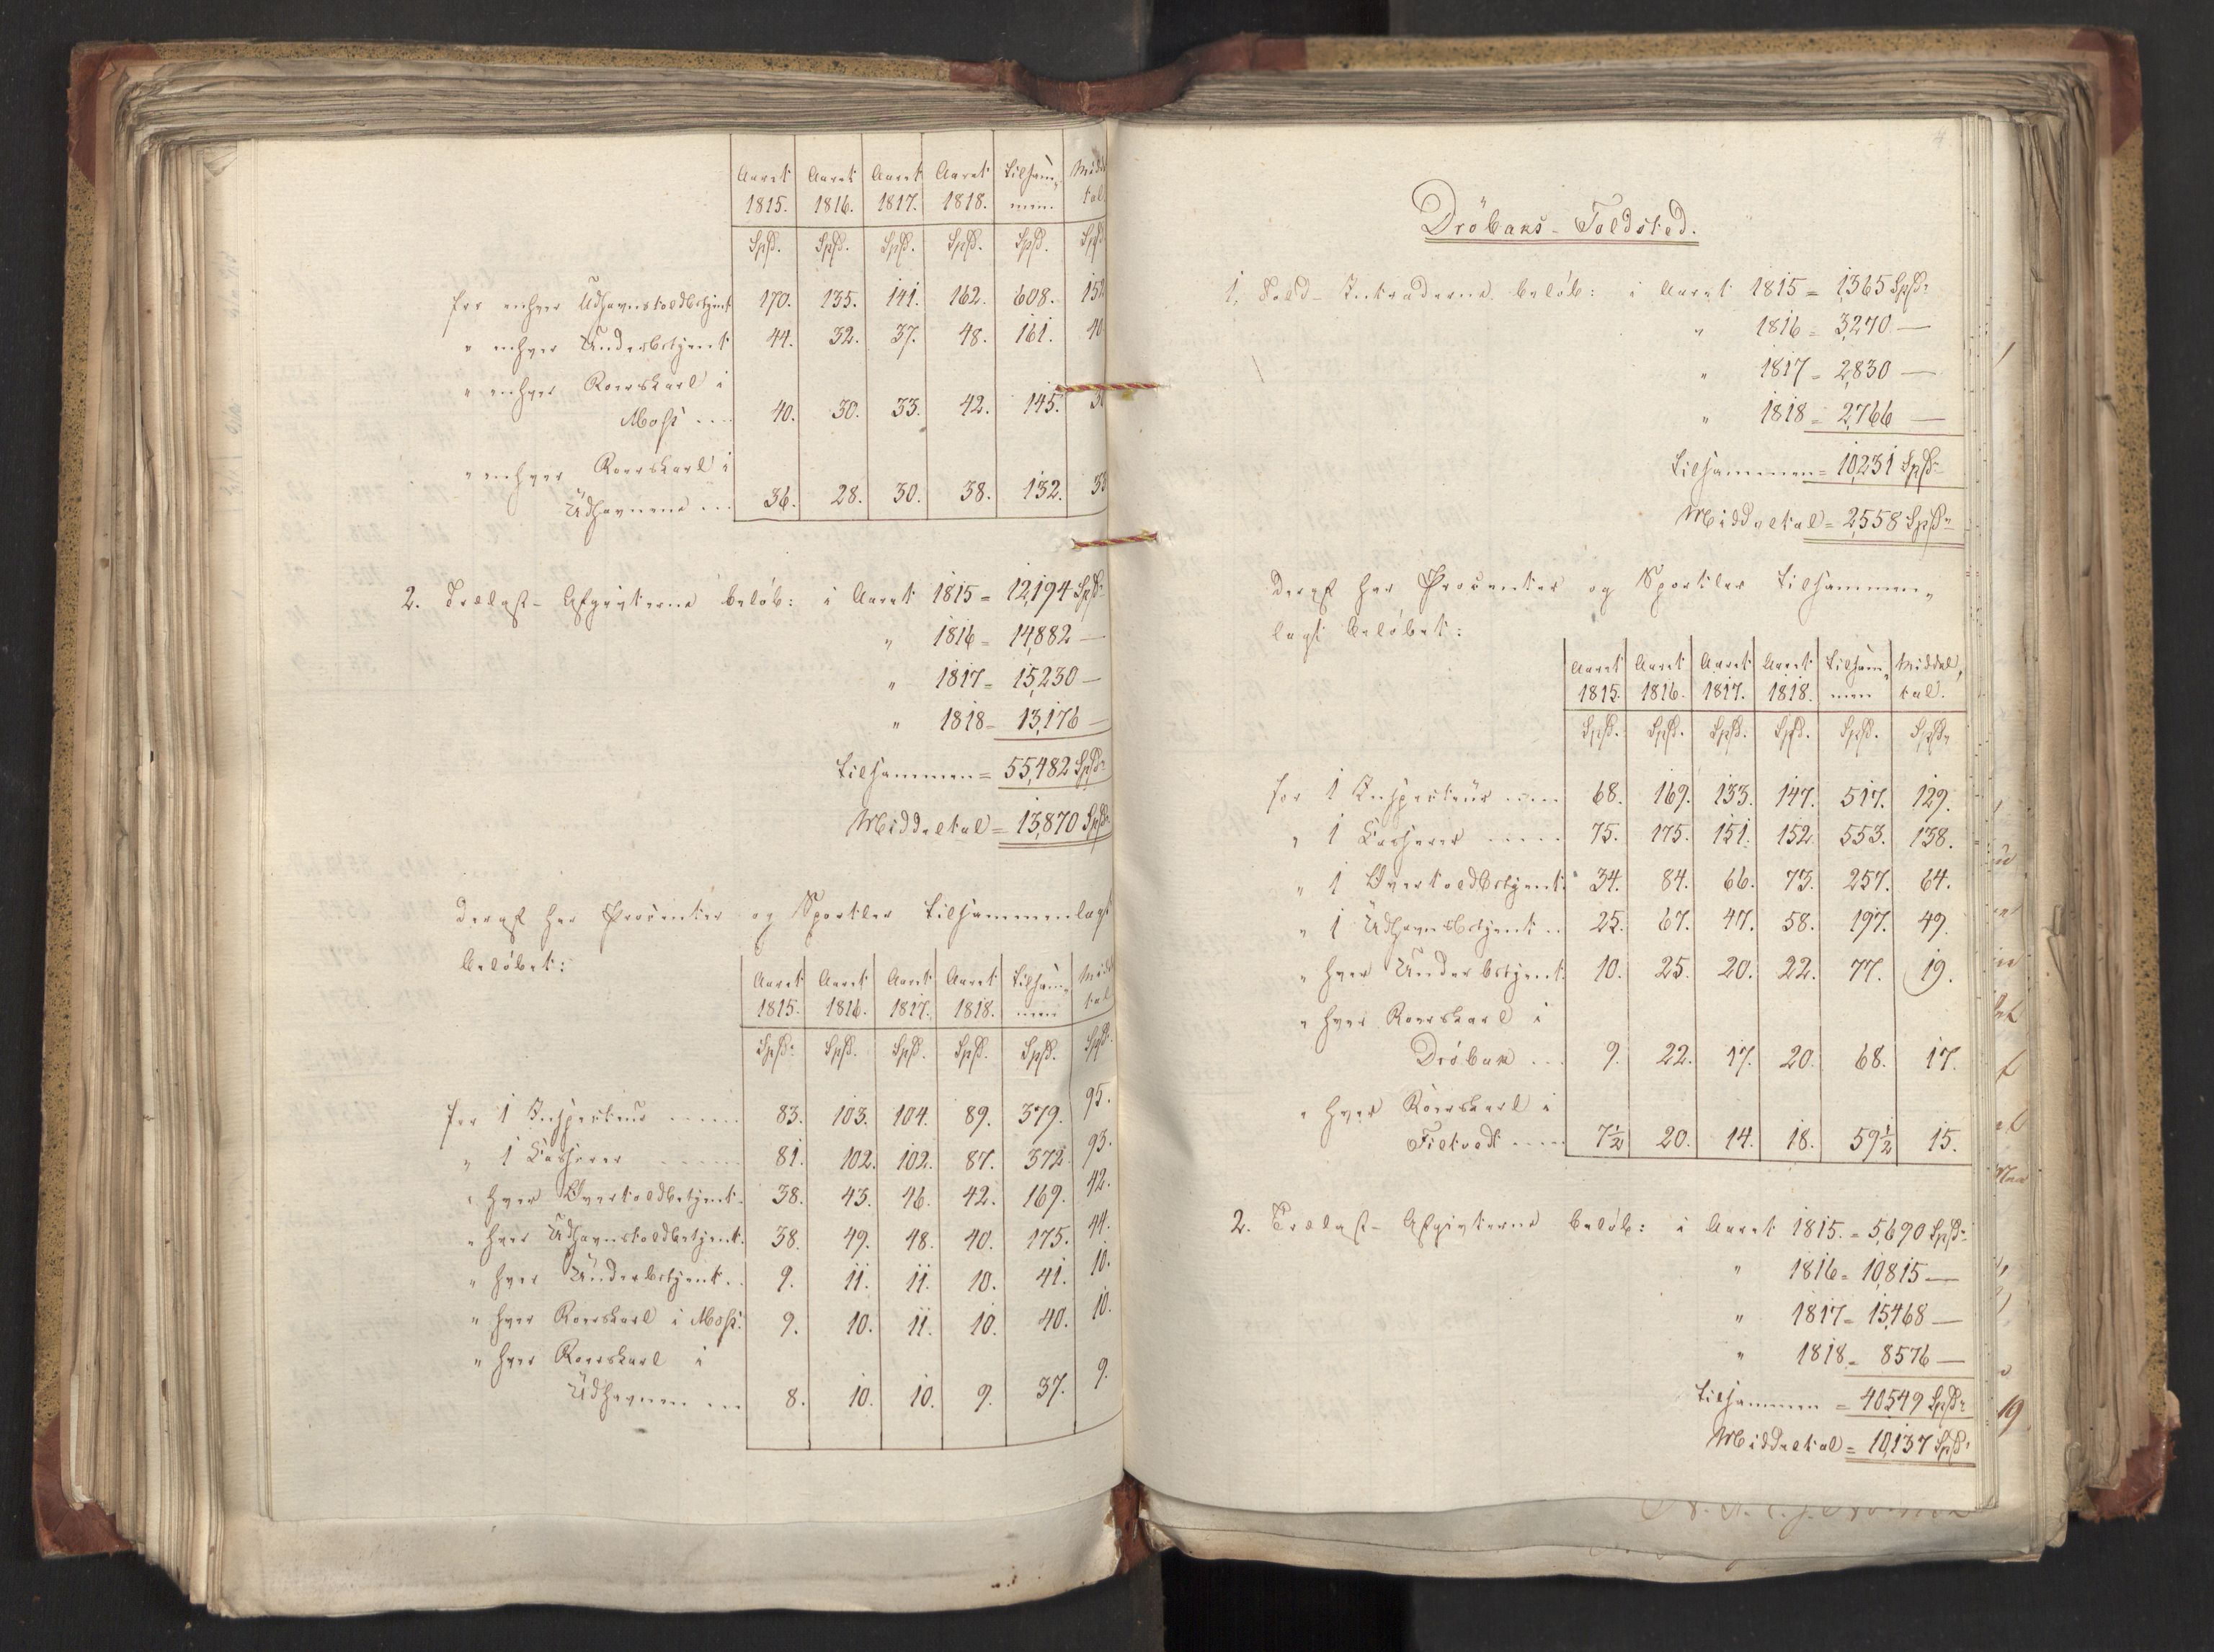 Aaret Aaret Aaret Aaret tilsam- Middel
1815. 1816. 1817. 1818. men. tal.
SpD. SpD. SpD. SpD. SpD. SpD
for enhver Udhavnstoldbetjent 170. 135. 141. 162. 608. 152
" enhver Underbetjent 44. 32. 37. 48. 161. 40
" enhver Roerskarl i
Moss .... 40. 30. 33. 42. 145.
" enhver Roerskarl i
Udhavnene ... 36. 28. 30. 38. 132. 33
2. Trælast-Afgivterne beløb: i Aaret 1815 = 12,194 SpD.
" 1816 = 14,882 —
" 1817 = 15,230 —
" 1818 = 13,176 —
tilsammen = 55,482 SpD.
Middeltal = 13,870 SpD.
deraf har Procenter og Sportler tilsammenlagt
beløbet:
Aaret Aaret Aaret Aaret tilsam- Middel
1815. 1816. 1817. 1818. men tal
SpD. SpD. SpD. SpD. SpD. SpD.
for 1 Inspecteur ..... 83. 103. 104. 89. 379. 95.
" 1 Casserer ..... 81. 102. 102. 87. 372. 93.
" hver Overtoldbetjent. 38. 43. 46. 42. 169. 42.
" hver Udhavnstoldbetjent. 38. 49. 48. 40. 175. 44.
" hver Underbetjent .. 9. 11. 11. 10. 41. 10.
" hver Roerskarl i Moss. 9. 10. 11. 10. 40. 10.
" hver Roerskarl i
Udhavnen ... 8. 10. 10. 9. 37. 9.
4
Dröbaks-Toldsted.
1, Told-Intraderne beløb: i Aaret 1815 = 1,365 SpD.
" 1816 = 3,270 —
" 1817 = 2,830 —
" 1818 = 2,766 —
tilsammen = 10,231 SpD.
Middeltal = 2,558 SpD.
deraf har Procenter og Sportler tilsammen-
lagt beløbet:
Aaret Aaret Aaret Aaret tilsam- Middel-
1815. 1816. 1817. 1818. men tal.
SpD. SpD. SpD. SpD. SpD. SpD.
for 1 Inspecteur .... 68. 169. 133. 147. 517. 129.
" 1 Casserer ..... 75. 175. 151. 152. 553. 138.
" 1 Overtoldbetjent. 34. 84. 66. 73. 257. 64.
" 1 Udhavnsbetjent .. 25. 67. 47. 58. 197. 49.
" hver Underbetjent 10. 25. 20. 22. 77. 19.
" hver Roerskarl i
Dröbak ... 9. 22. 17. 20. 68. 17.
" hver Roerskarl i
Filtvedt .... 7½ 20. 14. 18. 59½ 15.
2. Trælast-Afgivterne beløb: i Aaret 1815. = 5,690 SpD.
" 1816 = 10,815 —
" 1817 = 15,468 —
" 1818 = 8576 —
tilsammen = 40549 SpD.
Middeltal = 10,137 SpD.